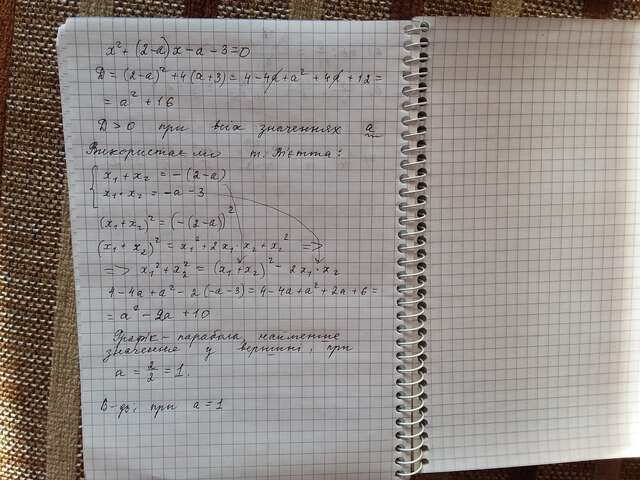 x² + (2-a)x - a - 3 = 0
D = (2-a)² + 4(a+3) = 4 - 4a + a² + 4a + 12 =
= a² + 16
D > 0 при всіх значеннях a
Використаємо т. Вієтта:
{ x₁ + x₂ = -(2-a)
x₁ · x₂ = -a - 3
(x₁ + x₂)² = (-(2-a))²
(x₁ + x₂)² = x₁² + 2x₁ x₂ + x₂² =>
=> x₁² + x₂² = (x₁ + x₂)² - 2x₁ · x₂
4 - 4a + a² - 2(-a-3) = 4 - 4a + a² + 2a + 6 =
= a² - 2a + 10
Графік - парабола, найменше
значення у вершині, при
a = 2/2 = 1.
В-дь: при a = 1